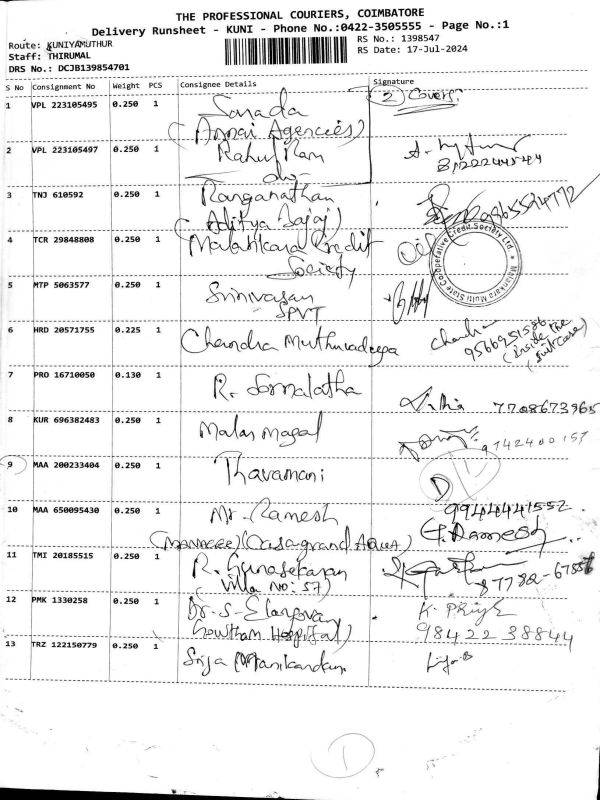 THE PROFESSIONAL COURIERS, COIMBATORE
Delivery Runsheet - KUNI - Phone No.:0422-3505555 - Page No.:1
Route: KUNIYAMUTHUR
RS No.: 1398547
Staff: THIRUMAL
RS Date: 17-Jul-2024
DRS No.: DCJB139854701
S No Consignment No Weight PCS Consignee Details Signature
1 VPL 223105495 0.250 1 Sarada 2 Covers
(Annai Agencies)
2 VPL 223105497 0.250 1 Rahul Ram
3 TNJ 610592 0.250 1 Ranganathan
(Aditya Bajaj)
4 TCR 29848808 0.250 1 Malankara Credit
Society
Malankara Multi State Cooperative Credit Society Ltd.
5 MTP 5063577 0.250 1 Srinivasan
SPVT
6 HRD 20571755 0.225 1 Chandra Muthuvadeepa chandra
9566951586
(inside the
suitcase)
7 PRO 16710050 0.130 1 R. Somalatha 7708673965
8 KUR 696382483 0.250 1 Malar Magal 9142400157
9 MAA 200233404 0.250 1 Thavamani D
10 MAA 650095430 0.250 1 Mr. Ramesh 9944441552
(MANAGER) (Casagrand Aqua) G. Ramesh
11 TMI 20185515 0.250 1 R. Gunasekaran
(Villa No: 57) 87782-67556
12 PMK 1330258 0.250 1 Dr. S. Elangovan K. PRIYA
Gowtham Hospital) 98422 38844
13 TRZ 122150779 0.250 1 Srija Manikandan
1